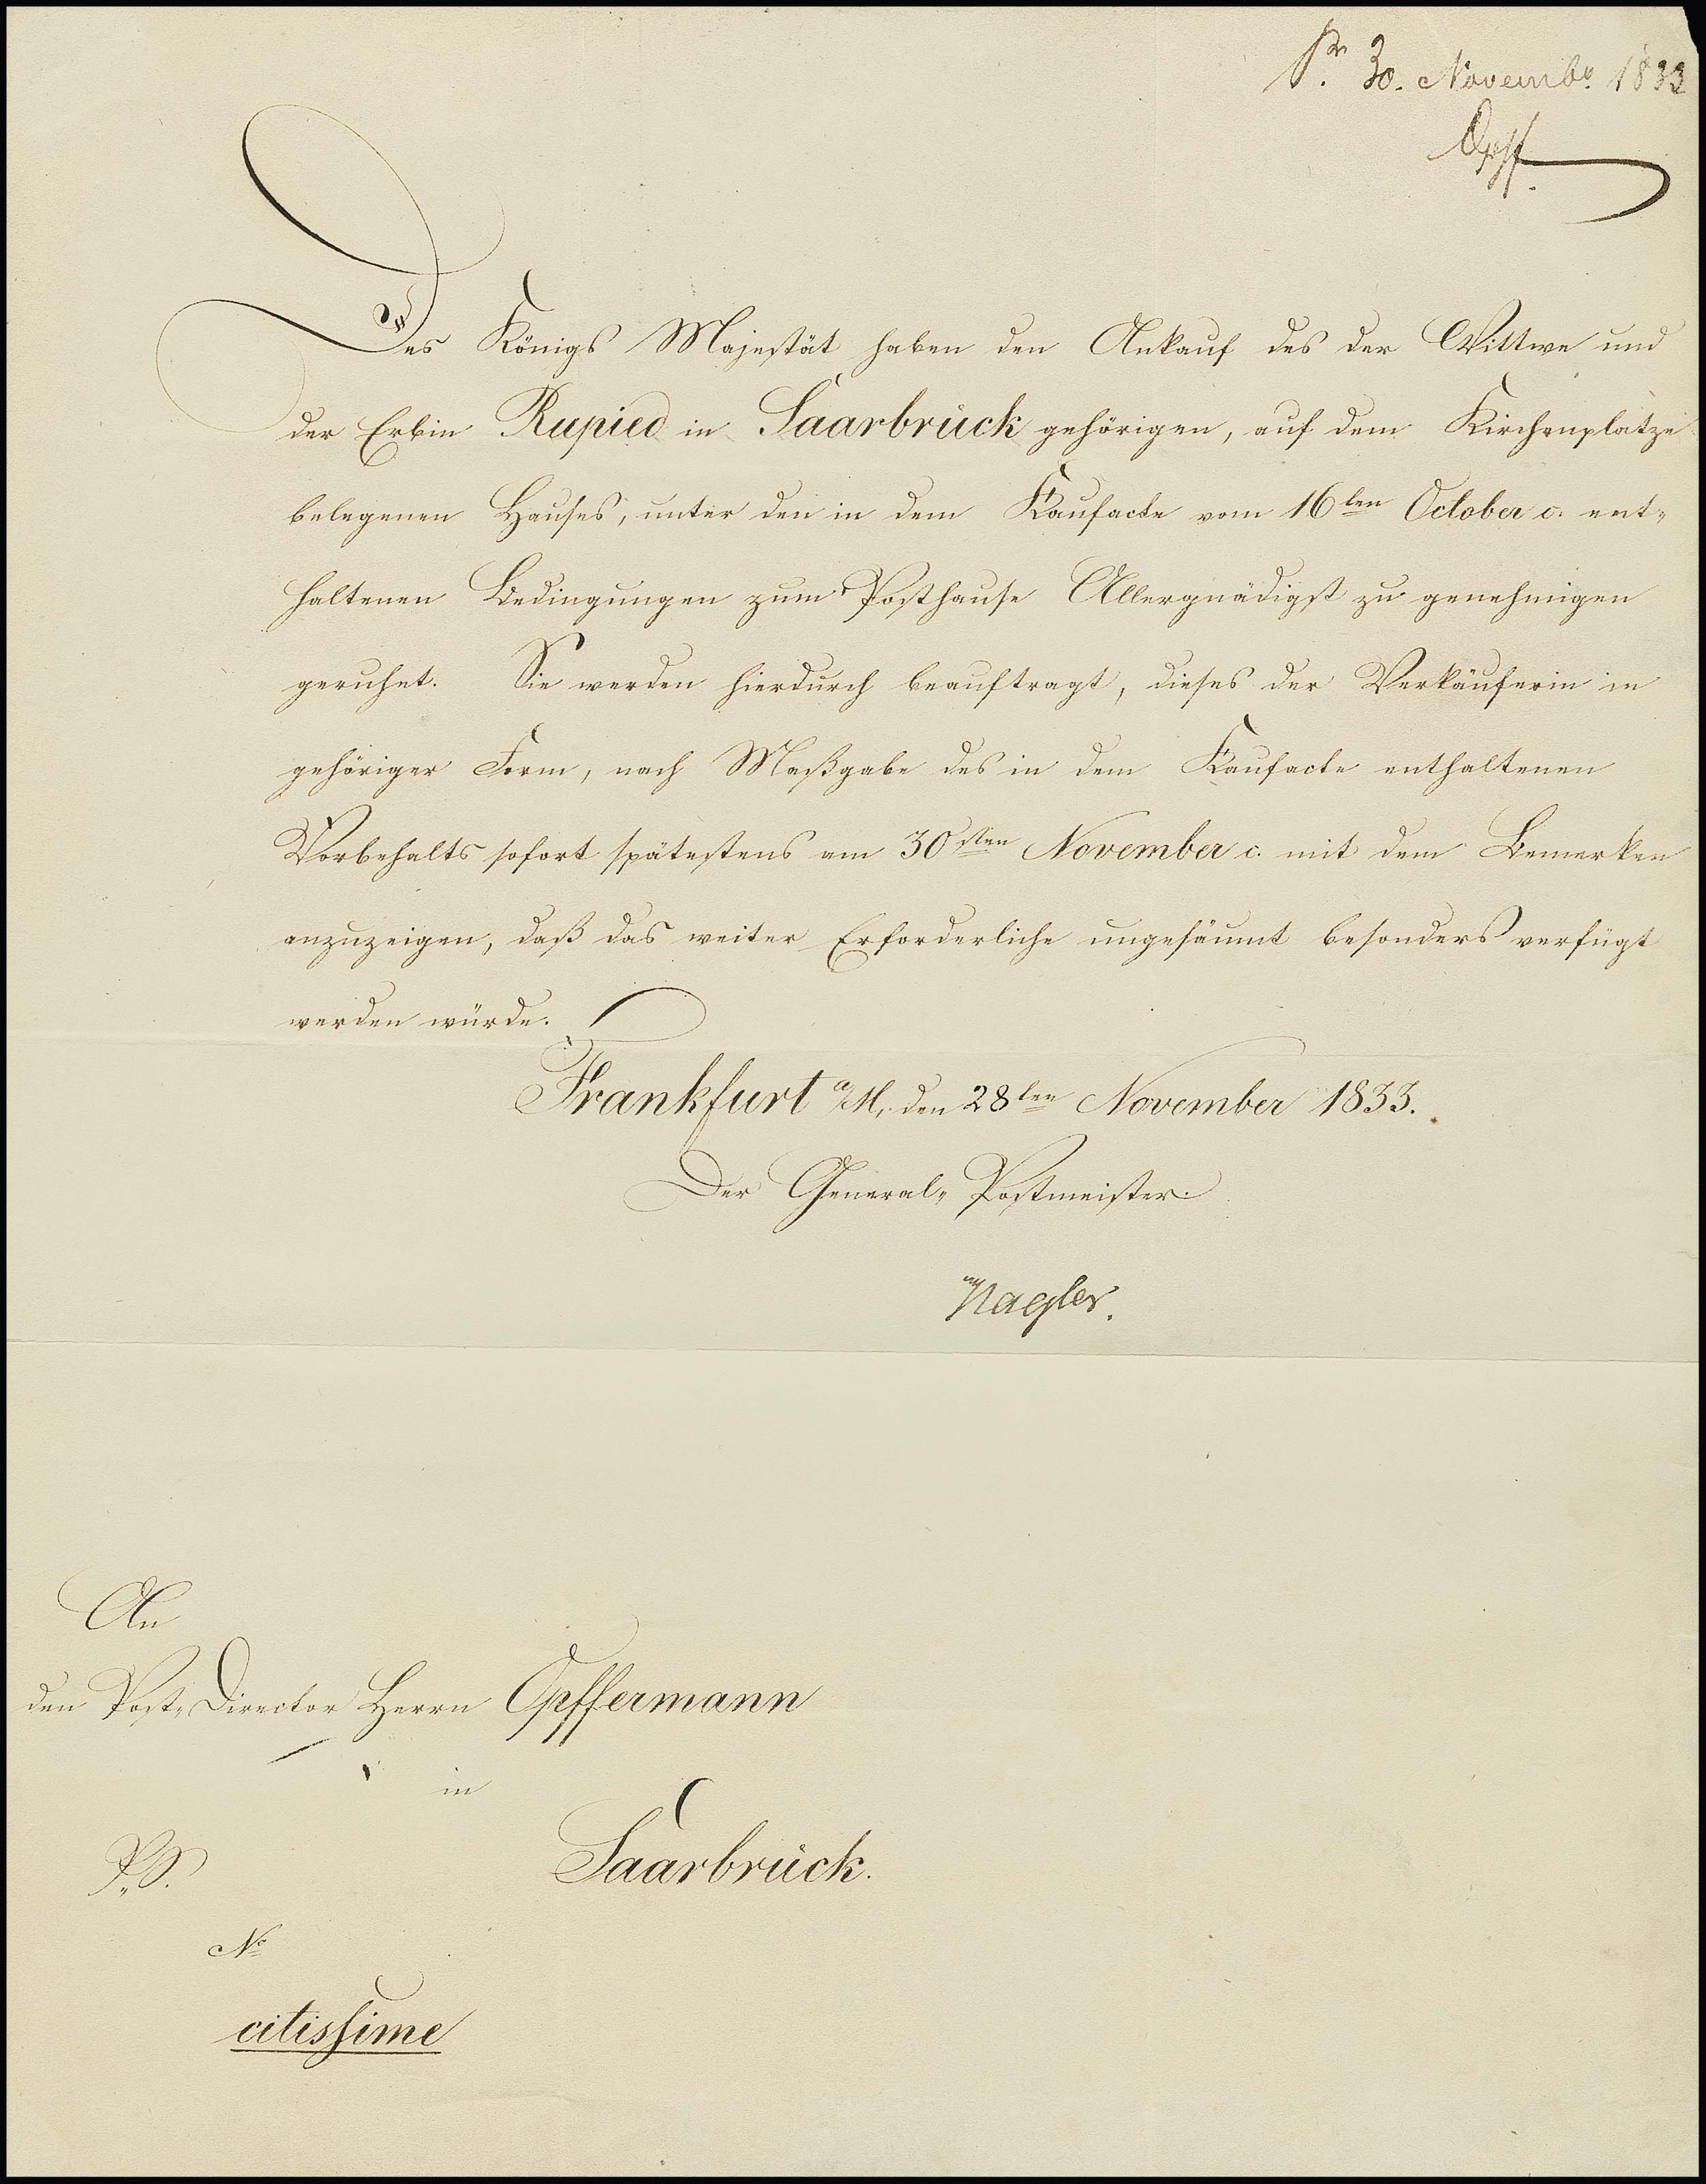 Pr. 30. Novembr. 1833
Opff.
Des Königs Majestät haben den Ankauf des der Wittwe und
der Erbin Rupied in Saarbrück gehörigen, auf dem Kirchenplatze
belegenen Hauses, unter den in dem Kaufacte vom 16ten October c. ent-
haltenen Bedingungen zum Posthause Allergnädigst zu genehmigen
geruhet. Sie werden hierdurch beauftragt, dieses der Verkäuferin in
gehöriger Form, nach Maßgabe des in dem Kaufacte enthaltenen
Vorbehalts sofort spätestens am 30sten November c. mit dem Bemerken
anzuzeigen, daß das weiter Erforderliche ungesäumt besonders verfügt
werden würde.
Frankfurt a/M, den 28ten November 1833.
Der General-Postmeister
Nagler.
An
den Post-Director Herrn Opffermann
in
Saarbrück.
No
citissime